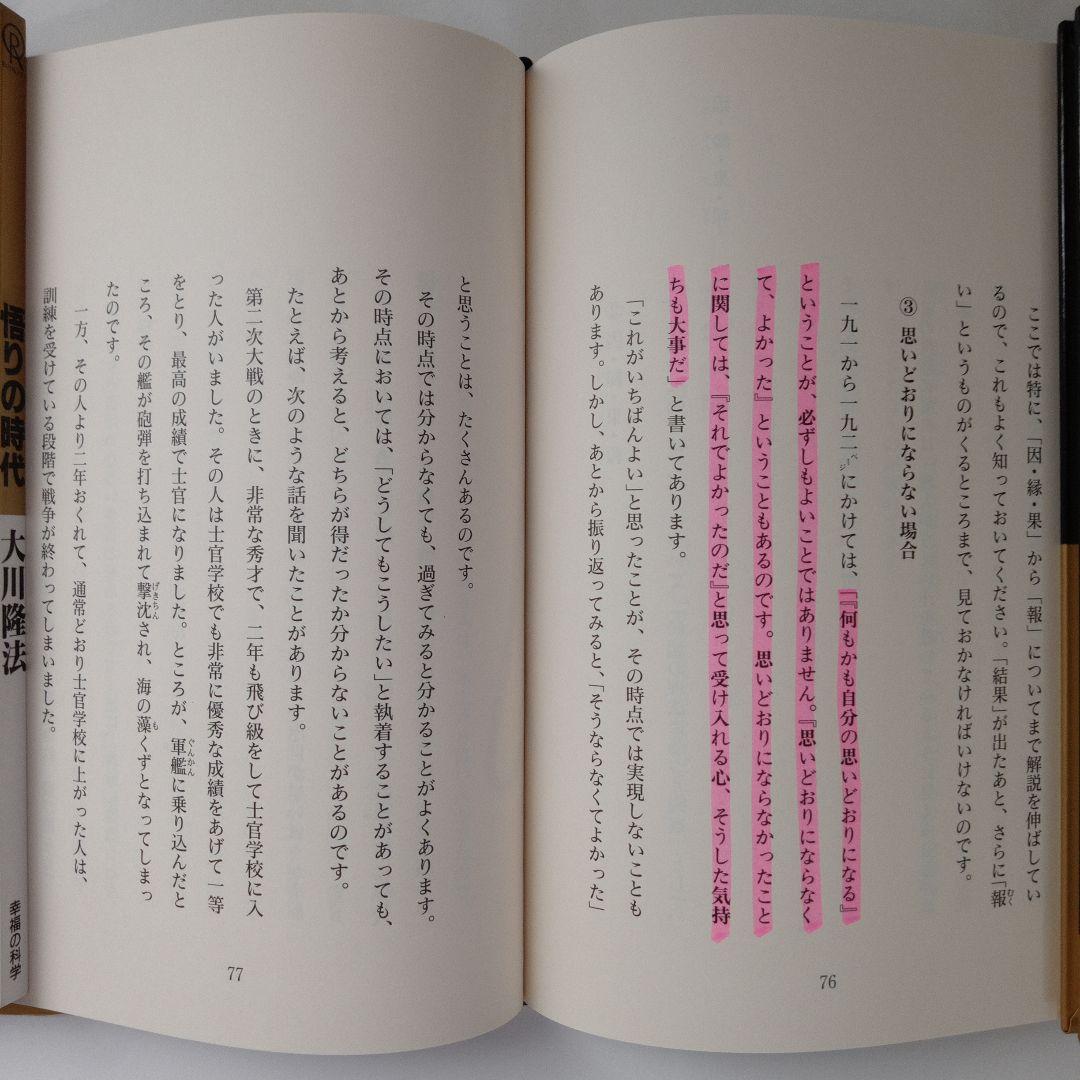 ここでは特に、「因・縁・果」から「報」についてまで解説を伸ばしてい
るので、これもよく知っておいてください。「結果」が出たあと、さらに「報
い」というものがくるところまで、見ておかなければいけないのです。
むく
③ 思いどおりにならない場合
一九一から一九二㌻にかけては、「『何もかも自分の思いどおりになる』
ページ
ということが、必ずしもよいことではありません。『思いどおりにならなく
て、よかった』ということもあるのです。思いどおりにならなかったこと
に関しては、『それでよかったのだ』と思って受け入れる心、そうした気持
ちも大事だ」と書いてあります。
「これがいちばんよい」と思ったことが、その時点では実現しないことも
あります。しかし、あとから振り返ってみると、「そうならなくてよかった」
76
と思うことは、たくさんあるのです。
その時点では分からなくても、過ぎてみると分かることがよくあります。
その時点においては、「どうしてもこうしたい」と執着することがあっても、
あとから考えると、どちらが得だったか分からないことがあるのです。
たとえば、次のような話を聞いたことがあります。
第二次大戦のときに、非常な秀才で、二年も飛び級をして士官学校に入
った人がいました。その人は士官学校でも非常に優秀な成績をあげて一等
をとり、最高の成績で士官になりました。ところが、軍艦に乗り込んだと
ぐんかん
ころ、その艦が砲弾を打ち込まれて撃沈され、海の藻くずとなってしまっ
げきちん
も
たのです。
一方、その人より二年おくれて、通常どおり士官学校に上がった人は、
訓練を受けている段階で戦争が終わってしまいました。
77
悟りの時代
大川隆法
幸福の科学